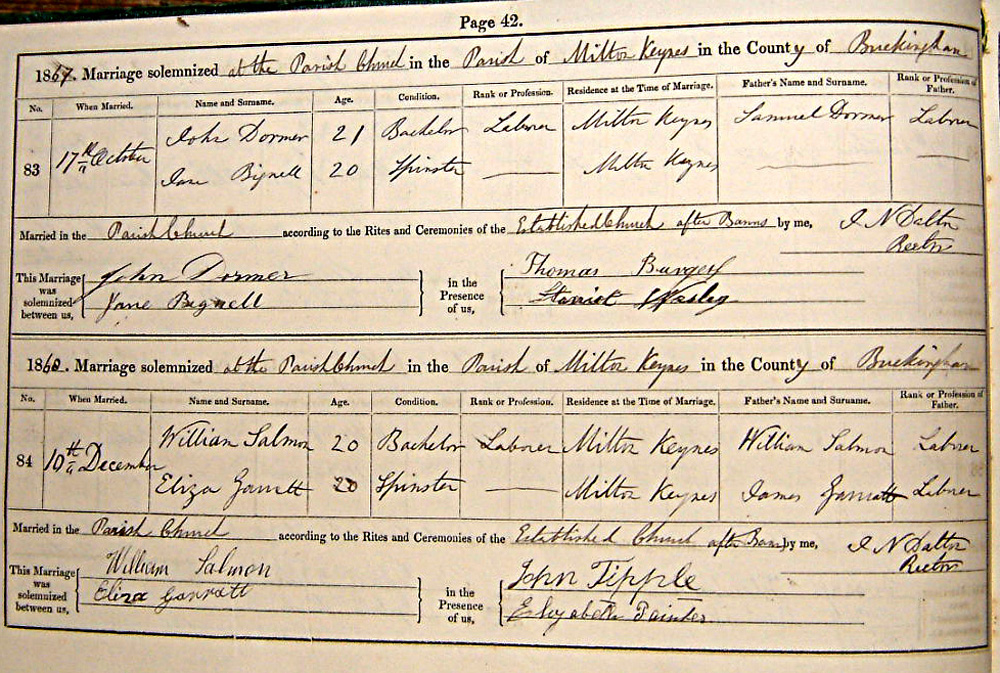 Page 42.
1867. Marriage solemnized at the Parish Church in the Parish of Milton Keynes in the County of Buckingham
No. When Married. Name and Surname. Age. Condition. Rank or Profession. Residence at the Time of Marriage. Father's Name and Surname. Rank or Profession of Father.
83 17th October John Dormer 21 Bachelor Laborer Milton Keynes Samuel Dormer Laborer
Jane Bignell 20 Spinster Milton Keynes
Married in the Parish Church according to the Rites and Ceremonies of the Established Church after Banns by me, J N Dalton
Rector
This Marriage was solemnized between us, John Dormer in the Presence of us, Thomas Burgess
Jane Bignell Harriet
186 . Marriage solemnized at the Parish Church in the Parish of Milton Keynes in the County of Buckingham
No. When Married. Name and Surname. Age. Condition. Rank or Profession. Residence at the Time of Marriage. Father's Name and Surname. Rank or Profession of Father.
84 10th December William Salmon 20 Bachelor Laborer Milton Keynes William Salmon Laborer
Eliza Garratt 20 Spinster Milton Keynes James Garratt Laborer
Married in the Parish Church according to the Rites and Ceremonies of the Established Church after Banns by me, J N Dalton
Rector
This Marriage was solemnized between us, William Salmon in the Presence of us, John Tipple
Eliza Garratt Elizabeth Painter